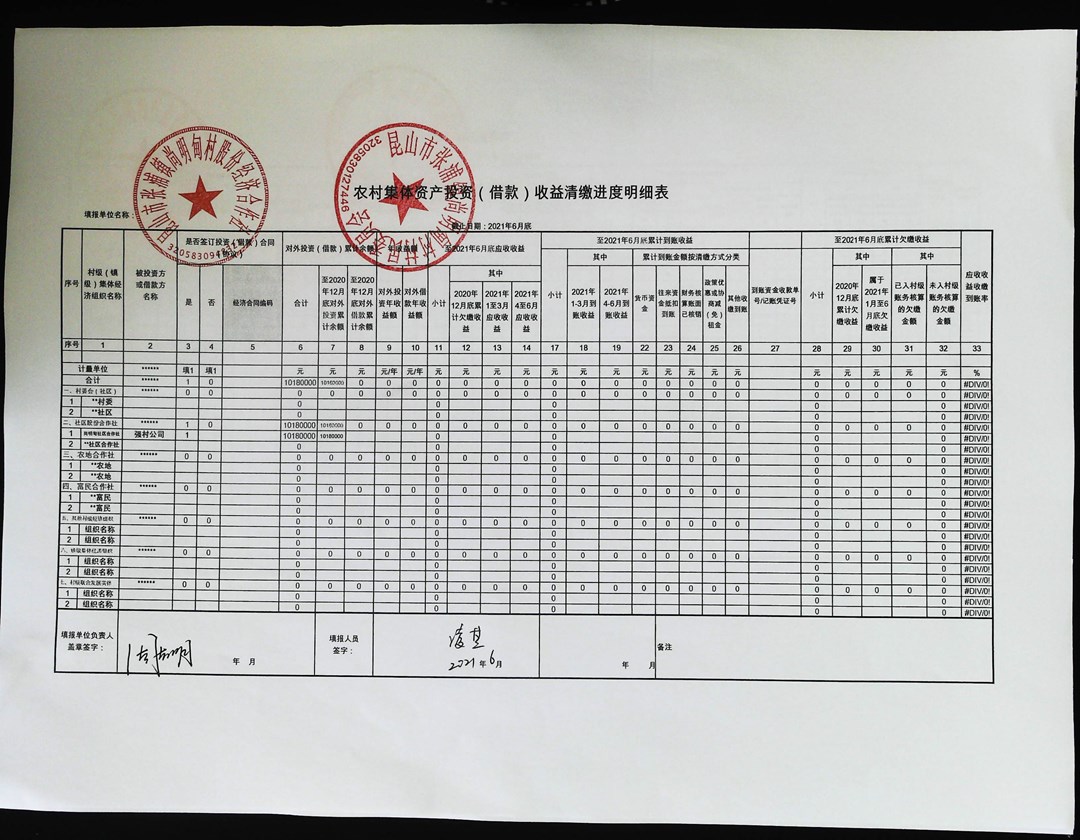 昆山市张浦镇尚明甸村股份经济合作社
昆山市张浦镇尚明甸村村民委员会
3205830127446
农村集体资产投资（借款）收益清缴进度明细表
填报单位名称：
截止日期：2021年6月底
序号 村级（镇级）集体经济组织名称 被投资方或借款方名称 是否签订投资（借款）合同（协议） 对外投资（借款）累计余额 年收益额 至2021年6月底应收收益 至2021年6月底累计到账收益 到账资金收款单号/记账凭证号 至2021年6月底累计欠缴收益 应收收益收缴到账率
其中 其中 累计到账金额按清缴方式分类 其中 其中
是 否 经济合同编码 合计 至2020年12月底对外投资累计余额 至2020年12月底对外借款累计余额 对外投资年收益额 对外借款年收益额 小计 2020年12月底累计欠缴收益 2021年1至3月应收收益 2021年4至6月应收收益 小计 2021年1-3月到账收益 2021年4-6月到账收益 货币资金 往来资金抵扣到账 财务核算账面已核销 政策优惠或协商减（免）租金 其他收缴到账 小计 2020年12月底累计欠缴收益 属于2021年1月至6月底欠缴收益 已入村级账务核算的欠缴金额 未入村级账务核算的欠缴金额
序号 1 2 3 4 5 6 7 8 9 10 11 12 13 14 17 18 19 22 23 24 25 26 27 28 29 30 31 32 33
计量单位 ****** 填1 填1 元 元 元 元/年 元/年 元 元 元 元 元 元 元 元 元 元 元 元 元 元 元 元 元 %
合计 ****** 1 0 10180000 10180000 0 0 0 0 0 0 0 0 0 0 0 0 0 0 0 0 0 0 0 0 #DIV/0!
一、村委会（社区） ****** 0 0 0 0 0 0 0 0 0 0 0 0 0 0 0 0 0 0 0 0 0 0 0 0 #DIV/0!
1 **村委 0 0 0 0 0 #DIV/0!
2 **社区 0 0 0 0 0 #DIV/0!
二、社区股份合作社 ****** 1 0 10180000 10180000 0 0 0 0 0 0 0 0 0 0 0 0 0 0 0 0 0 0 0 0 #DIV/0!
1 尚明甸社区合作社 强村公司 1 10180000 10180000 0 0 0 0 #DIV/0!
2 **社区合作社 0 0 0 0 0 #DIV/0!
三、农地合作社 ****** 0 0 0 0 0 0 0 0 0 0 0 0 0 0 0 0 0 0 0 0 0 0 0 0 #DIV/0!
1 **农地 0 0 0 0 0 #DIV/0!
2 **农地 0 0 0 0 0 #DIV/0!
四、富民合作社 ****** 0 0 0 0 0 0 0 0 0 0 0 0 0 0 0 0 0 0 0 0 0 0 0 0 #DIV/0!
1 **富民 0 0 0 0 0 #DIV/0!
2 **富民 0 0 0 0 0 #DIV/0!
五、其他村级经济组织 ****** 0 0 0 0 0 0 0 0 0 0 0 0 0 0 0 0 0 0 0 0 0 0 0 0 #DIV/0!
1 组织名称 0 0 0 0 0 #DIV/0!
2 组织名称 0 0 0 0 0 #DIV/0!
六、镇级集体经济组织 ****** 0 0 0 0 0 0 0 0 0 0 0 0 0 0 0 0 0 0 0 0 0 0 0 0 #DIV/0!
1 组织名称 0 0 0 0 0 #DIV/0!
2 组织名称 0 0 0 0 0 #DIV/0!
七、村级联合发展载体 ****** 0 0 0 0 0 0 0 0 0 0 0 0 0 0 0 0 0 0 0 0 0 0 0 0 #DIV/0!
1 组织名称 0 0 0 0 0 #DIV/0!
2 组织名称 0 0 0 0 0 #DIV/0!
填报单位负责人盖章签字： 年 月 填报人员签字： 2021年6月 年 月 备注